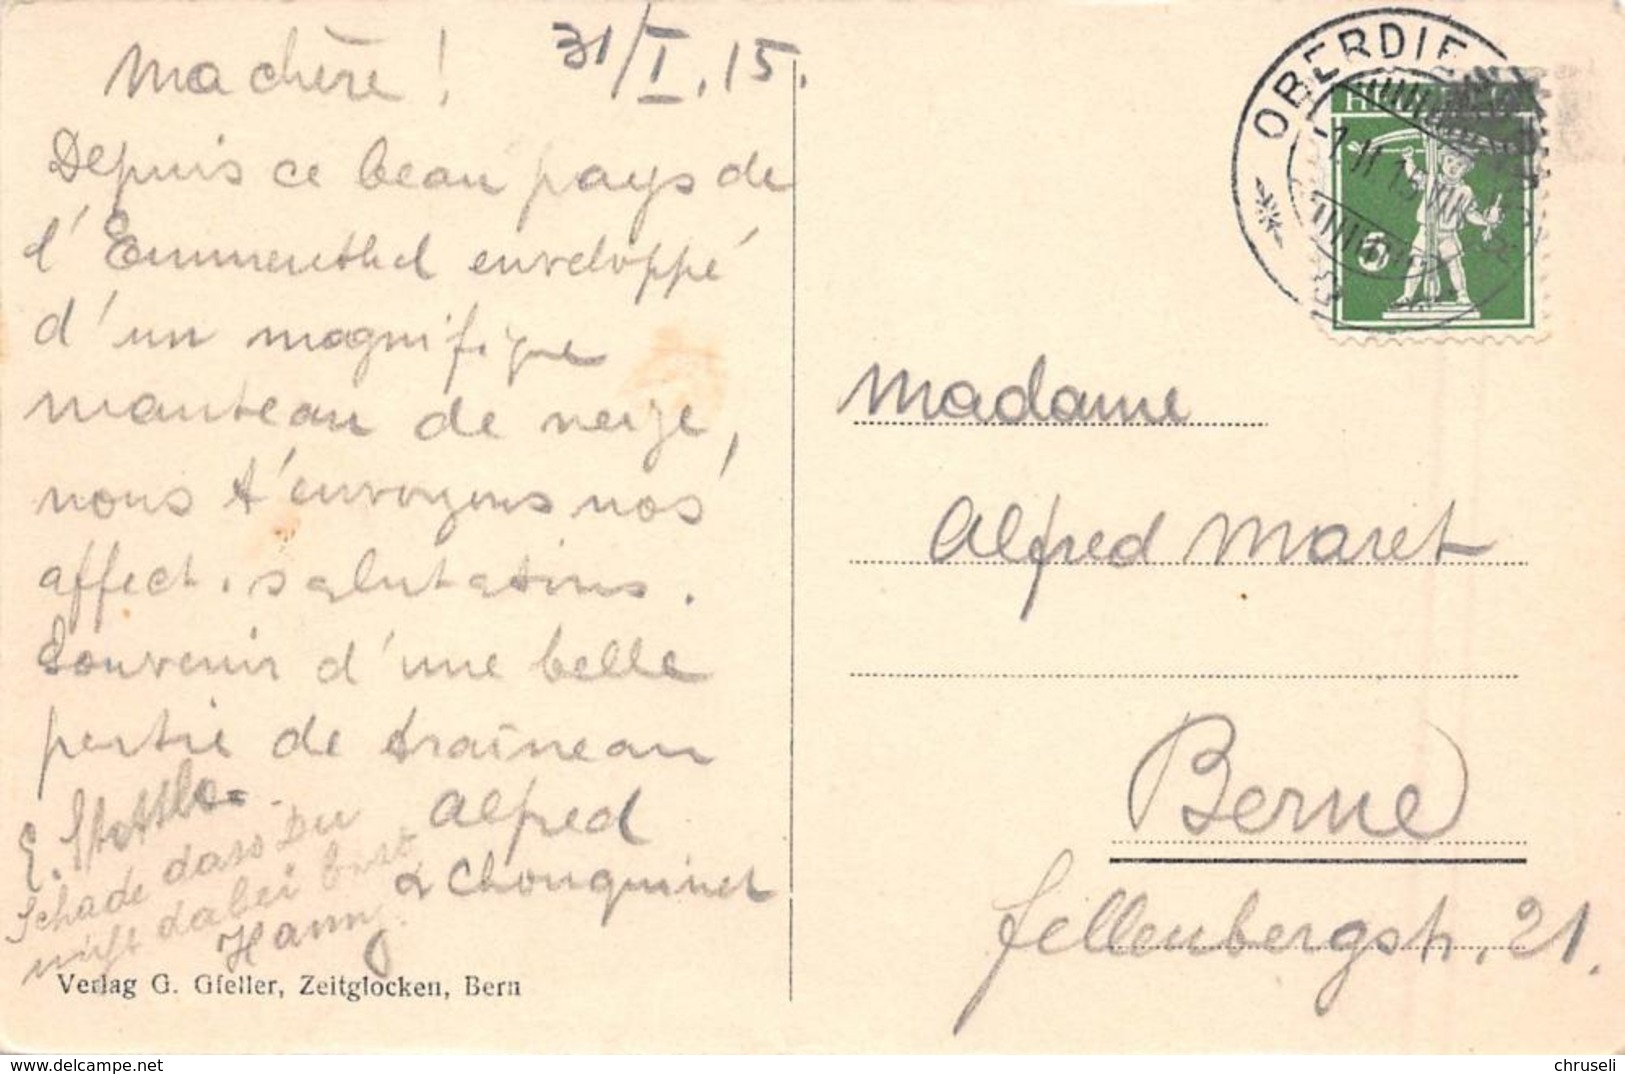 Ma chère ! 31/I.15.
Depuis ce beau pays de
l'Emmenthal enveloppé
d'un magnifique
manteau de neige,
nous t'envoyons nos
affect. salutations.
Souvenir d'une belle
partie de traîneau
Alfred
& Chouquinet
Schade dass Du
nicht dabei bist
Hanny.
Verlag G. Gfeller, Zeitglocken, Bern
OBERDIE
HE
-1.II.15.VII
5
Madame
Alfred Maret
Berne
Fellenbergstr. 21.
chruseli